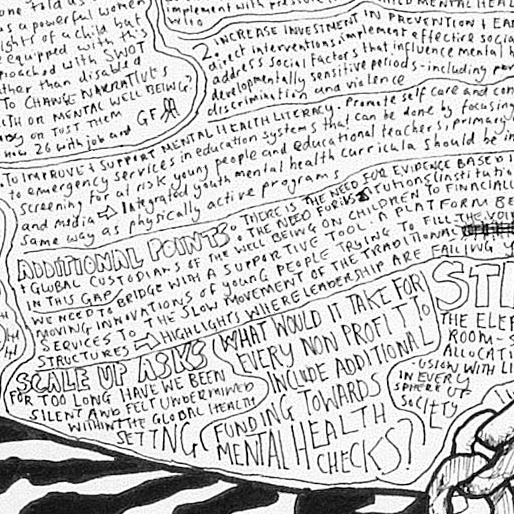 as a powerful women
ights of a child but
equipped with this
proached with SWOT
ther than disabled
To CHANGE NARRATIVE'S
LTH OR MENTAL WELL BEING?
on JUST THEM
now 26 with job and GF
MENTAL HEAL
2. INCREASE INVESTMENT IN PREVENTION & EA
direct interventions, implement effective socia
address social factors that influence mental h
developmentally sensitive periods - including pov
discrimination and violence
TO IMPROVE & SUPPORT MENTAL HEALTH LITERACY. Promote self care and con
to emergency services in education systems that can be done by focusing
screening for at risk young people and educational teachers, primary
and media ⇨ Integrated youth mental health curricula should be in
same way as physically active programs
ADDITIONAL POINTS. THERE IS THE NEED FOR EVIDENCE BASED I
THE NEED FOR INSTITUTIONS (institutio
+ GLOBAL CUSTODIANS OF THE WELL BEING ON CHILDREN TO FINACIALL
IN THIS GAP) WITH A SUPPORTIVE TOOL. A PLATFORM BE
WE NEED TO BRIDGE
MOVING INNOVATIONS OF YOUNG PEOPLE TRYING TO FILL THE VOI
SERVICES TO THE SLOW MOVEMENT OF THE TRADITIONAL
STRUCTURES ⇨ HIGHLIGHTS WHERE LEADERSHIP ARE FALLING
SCALE UP ASKS
FOR TOO LONG HAVE WE BEEN
SILENT AND FELT UNDERMINED
WITHIN THE GLOBAL HEALTH
SETTING
WHAT WOULD IT TAKE FOR
EVERY NON PROFIT TO
INCLUDE ADDITIONAL
FUNDING TOWARDS
MENTAL HEALTH
CHECKS?
STI
THE ELEP
ROOM-S
ALLOCATI
USION WITH LI
IN EVERY
SPHERE OF
SOCIETY